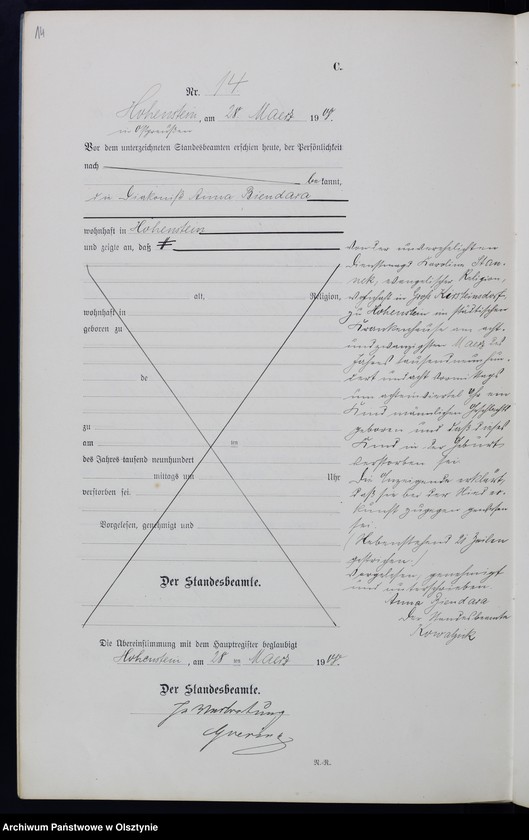 14
C.
Nr. 14
Hohenstein, am 28 Maerz 1908.
in Ostpreußen
Vor dem unterzeichneten Standesbeamten erschien heute, der Persönlichkeit
nach
bekannt,
die Diakonisse Anna Biendara
wohnhaft in Hohenstein
und zeigte an, daß
von der unverehelichten
Dienstmagd Karoline
evangelischer Religion,
wohnhaft in Groß
zu Hohenstein im städtischen
Krankenhause am acht-
undzwanzigsten Maerz des
Jahres tausendneunhun-
dert und acht Vormittags
um Uhr ein
Kind männlichen Geschlechts
geboren und daß dieses
Kind in der Geburt
verstorben sei
Die Anzeigende erklärte,
daß sie bei der Nieder-
kunft zugegen gewesen
sei.
(Nebenstehend 20 Zeilen
gestrichen.)
Vorgelesen, genehmigt
und unterschrieben
Anna Biendara
Der Standesbeamte
Kowalzick
alt, Religion,
wohnhaft in
geboren zu
de
zu
am ten
des Jahres tausend neunhundert
mittags um Uhr
verstorben sei.
Vorgelesen, genehmigt und
Der Standesbeamte.
Die Übereinstimmung mit dem Hauptregister beglaubigt
Hohenstein, am 28 ten Maerz 1908.
Der Standesbeamte.
In Vertretung
N.-R.
Archiwum Państwowe w Olsztynie